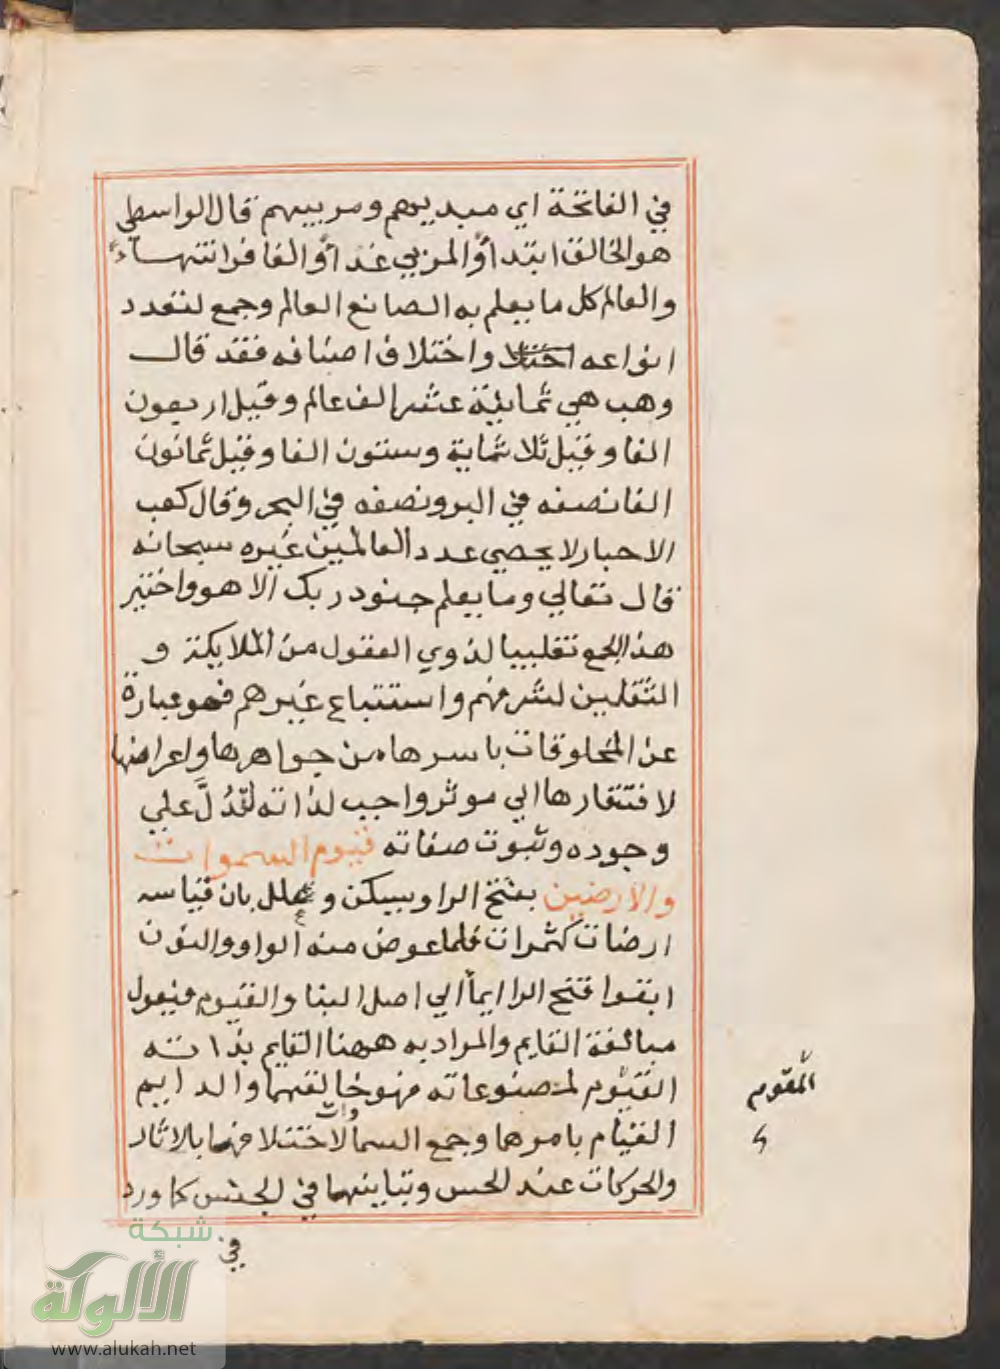 في الفاتحة اي مبديهم ومربيهم قال الواسطي
هو الخالق ابتداً والمربي غذاً والغافر انتهاءً
والعالم كل ما يعلم به الصانع العالم وجمع لتعدد
انواعه اختلا واختلاف اصنافه فقد قال
وهب هي ثمانية عشر الف عالم وقيل اربعون
الفا وقيل ثلاثماية وستون الفا وقيل ثمانون
الفا نصفه في البر ونصفه في البحر وقال كعب
الاحبار لا يحصي عدد العالمين غيره سبحانه
قال تعالي وما يعلم جنود ربك الا هو واختير
هذا الجمع تغليبا لذوي العقول من الملايكة و
الثقلين لشرفهم واستتباع غيرهم فهو عبارة
عن المخلوقات باسرها من جواهرها واعراضها
لافتقارها الي موثر واجب لذاته تدل علي
وجوده وثبوت صفاته قيوم السموات
والارضين بفتح الرا ويسكن وعلل بان قياسه
ارضات كثمرات فلما عوض منه الواو والنون
ابقوا فتح الرا ايماً الي اصل البنا والقيوم فيعول
مبالغة القايم والمراد به ههنا القايم بذاته
القيوم لمصنوعاته فهو خالقهما والدايم
القيام بامرها وجمع السموات لاختلافها بالاثار
والحركات عند الحس وتباينهما في الجنس كما ورد
المقوم
في
شبكة
الألوكة
www.alukah.net